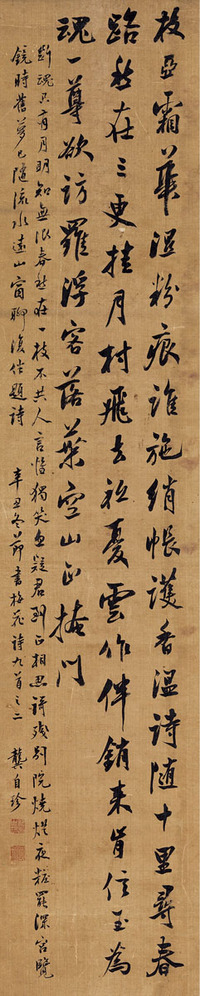 枝亞霜華溼粉痕誰施綃帳護香溫詩隨十里尋春
路愁在三更挂月村飛去祗憂雲作伴銷来肯信玉為
魂一尊欲訪羅浮客落葉空山正掩門
斷魂只有月明知無限春愁在一枝不共人言惟獨笑忽疑君到正相思詩殘別院燒燈夜粧罷深宮覽
鏡時舊夢已隨流水遠山窗聊復伴題詩 辛丑冬節書梅花詩九首之二 龔自珍